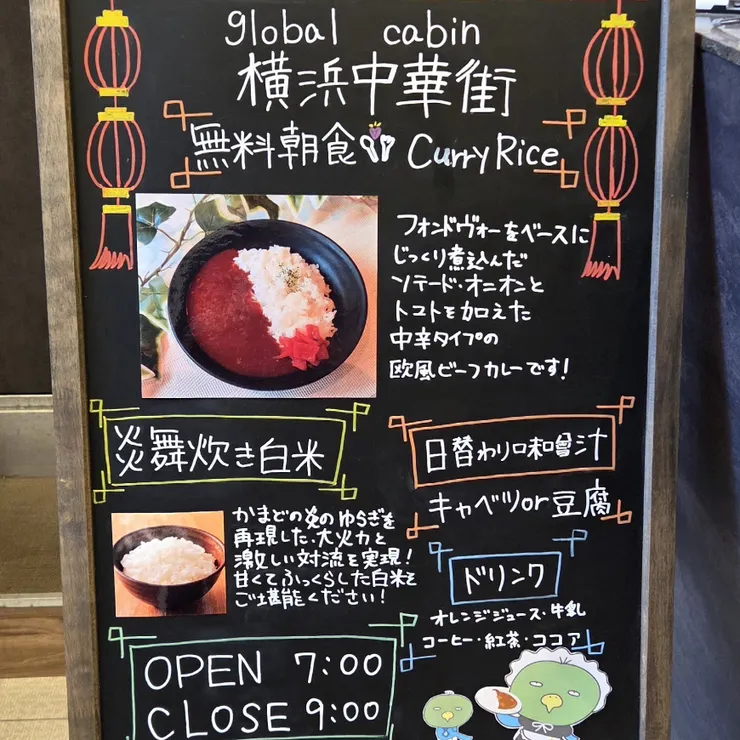 global cabin
横浜中華街
無料朝食 Curry Rice
フォンドヴォーをベースに
じっくり煮込んだ
ソテード・オニオンと
トマトを加えた
中辛タイプの
欧風ビーフカレーです!
炎舞炊き白米
かまどの炎のゆらぎを
再現した、大火力と
激しい対流を実現!
甘くてふっくらした白米を
ご堪能ください!
日替わり味噌汁
キャベツor豆腐
ドリンク
オレンジジュース・牛乳
コーヒー・紅茶・ココア
OPEN 7:00
CLOSE 9:00